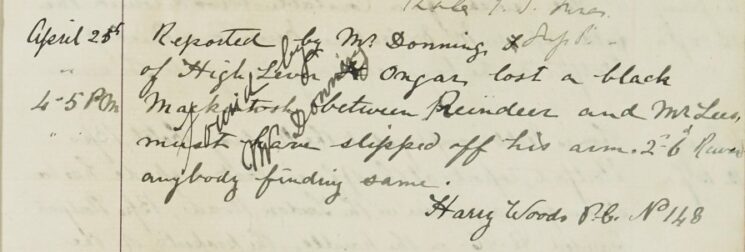 April 25th Reported by Mr Donning
" of High Laver Ongar lost a black
4-5 PM Mackintosh between Reindeer and Mr Lees,
" must have slipped off his arm. 2s-6d Reward
anybody finding same.
Harry Woods P.C. No 148
found by
Mr Donning